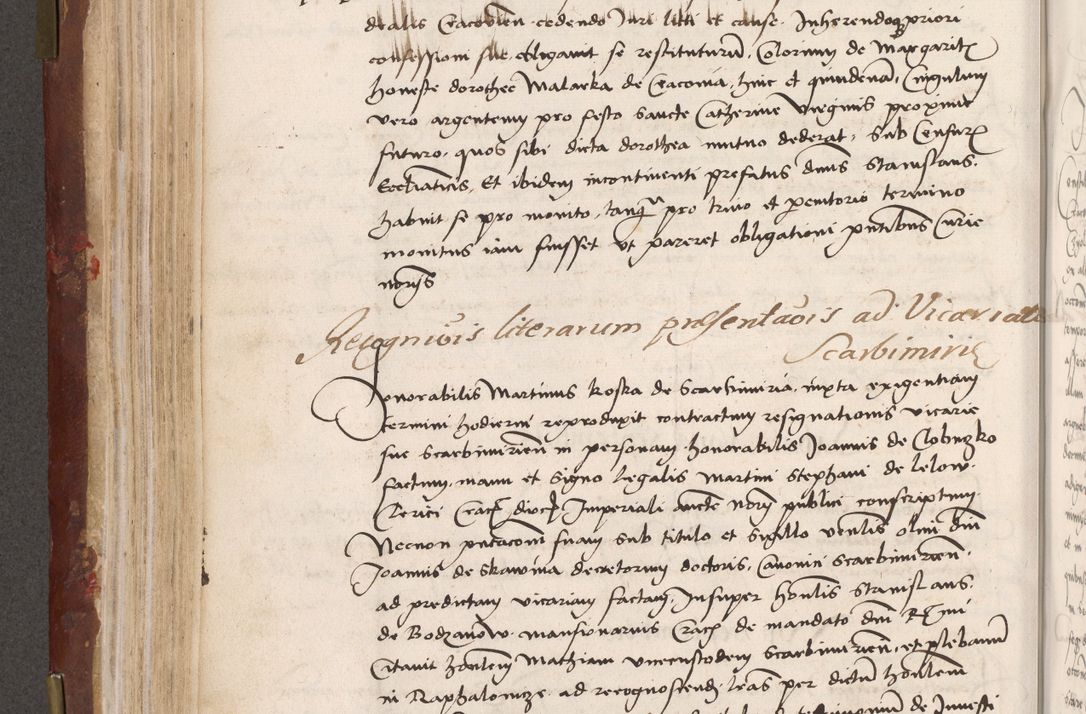 dealis Cracovien cedendo Juri liti et cause Inherendoque priori
confessioni sue obligavit se restituturum Colorinum de Margaritis
honeste dorothee Malarka de Cracovia hinc et quindenam Cingulum
vero argenteum pro festo Sancte Catherine virginis proxime
futuro quos sibi dicta dorothea mutuo dederat sub Censuris
Eccliaticis Et ibidem incontinenti prefatus dnus Stanislaus
habuit se pro monito tanqua pro trino et peremtorio termino
monitus iam fuisset ut pareret obligationi pntibus Curie
noriis
Recognitiois literarum presentatiois ad Vicariatu
Scarbimirie
Honorabilis Martinus Koska de Scarbimiria iuxta exigentiam
termini hodierni reproduxit contractum resignationis vicarie
sue Scarbimirien in personam honorabilis Joannis de Clobuczko
factum manu et signo legalis Martini Stephani de lelow
Clerici Crac dioc Imperiali aucte norii publici conscriptum
Necnon pntaconem suam sub titulo et sigillo venlis olim dni
Joannis de Skawina decretorum doctoris Canonici Scarbimirien
ad predictam vicariam factam Insuper honlis Stanislaus
de Bodzanow mansionarius Crac de mandato dni R
Citavit honlem Mathiam vicecustodem Scarbimirien et plebanum
in Raphalowicze ad recognoscend leras per dictum honlem
de Investi